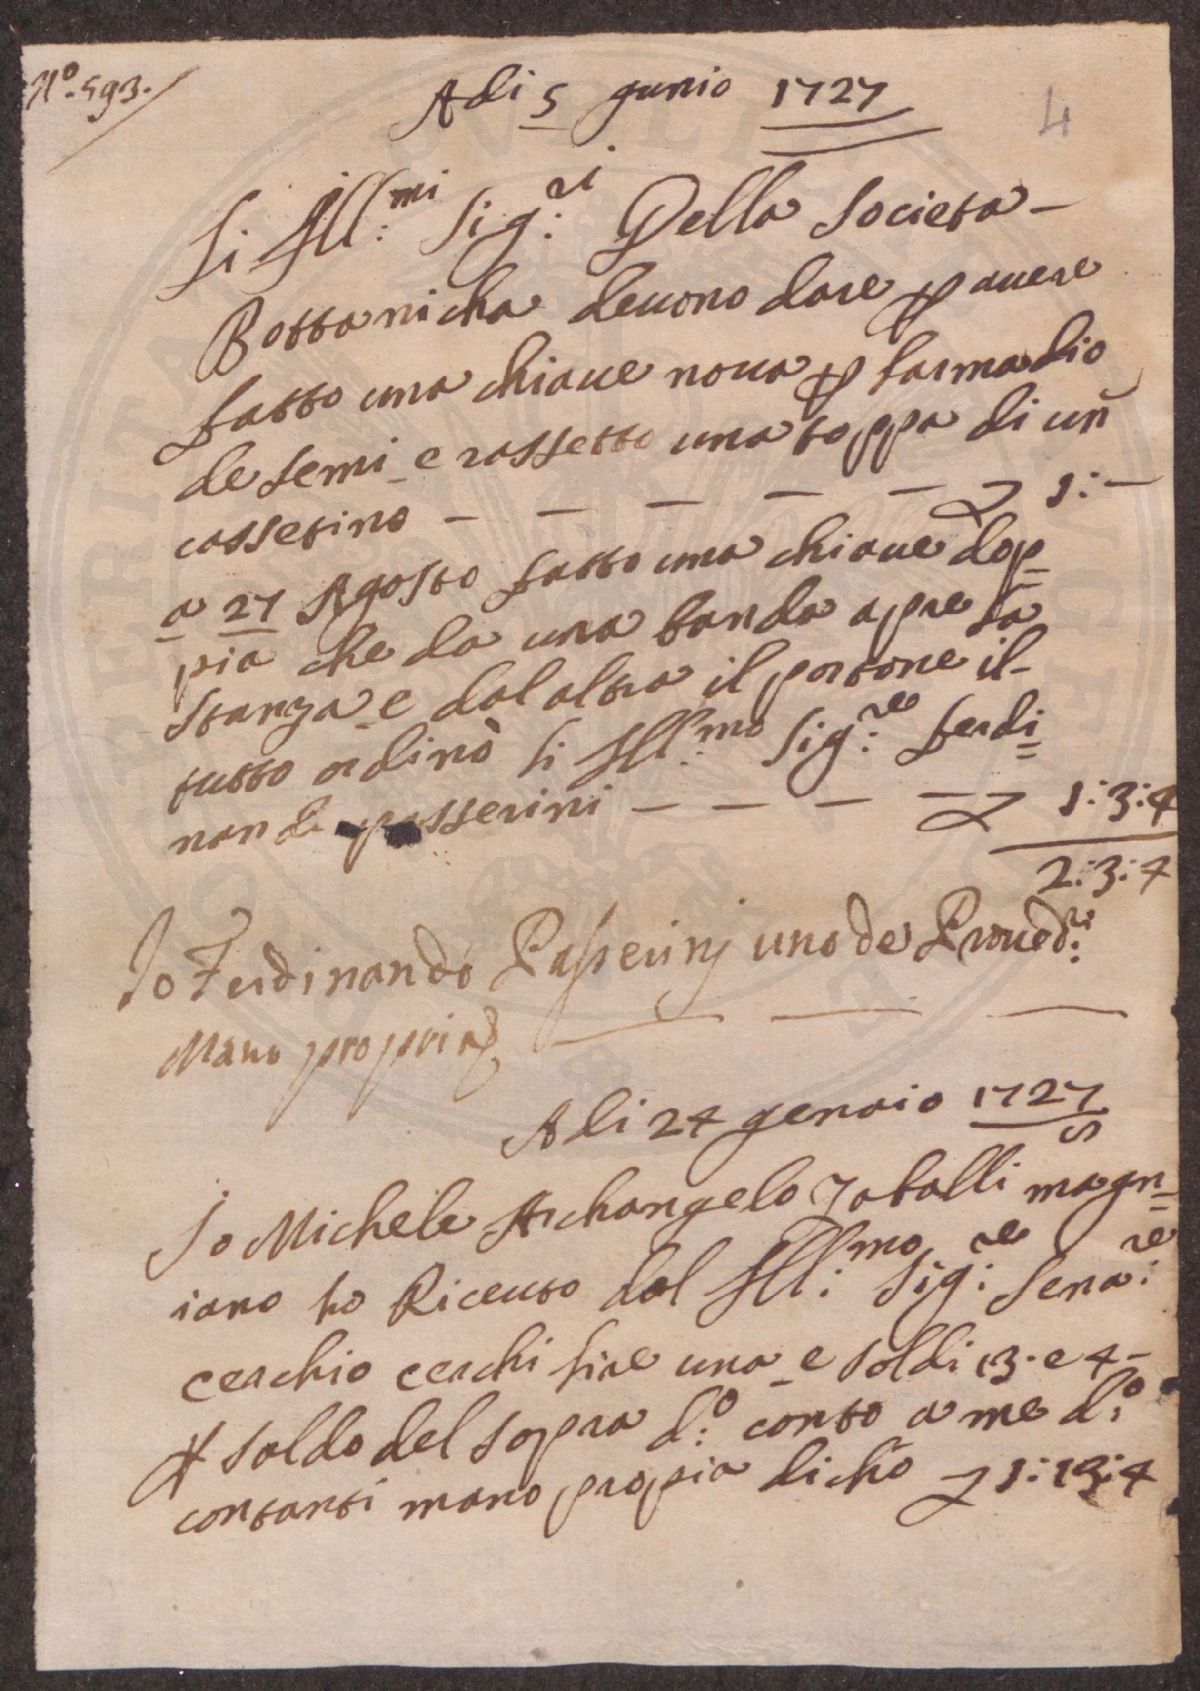 N.º 593.
Adi 5 gunio 1727
4
Li Ill:mi Sig:ri Della Societa -
Bottanicha devono dare p avere
fatto una chiave nova p larmadio
de semi e rassetto una toppa di un
cassetino - - - - - - 1: -
a 27 Agosto fatto una chiave dop=
pia che da una banda apre la
stanza e dal altra il portone il-
tutto ordinò li Ill:mo Sig:re ferdi=
nando passerini - - - - 1: 3: 4
2: 3: 4
Io Ferdinando Passerinj uno de Proved:ri
Mano propria
Adi 24 genaio 1727
Io Michele Archangelo magn=
iano ho Riceuto dal Ill:mo Sig:re Sena:re
cerchio cerchi lire una e soldi 13. e 4 -
p saldo del sopra d:º conto a me d:º
contanti mano propia dicho 1: 13: 4